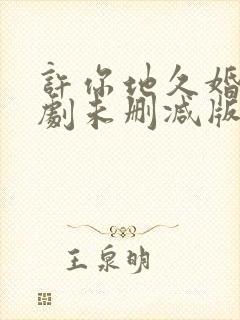 許你地久婚
劇未删减版
王泉明